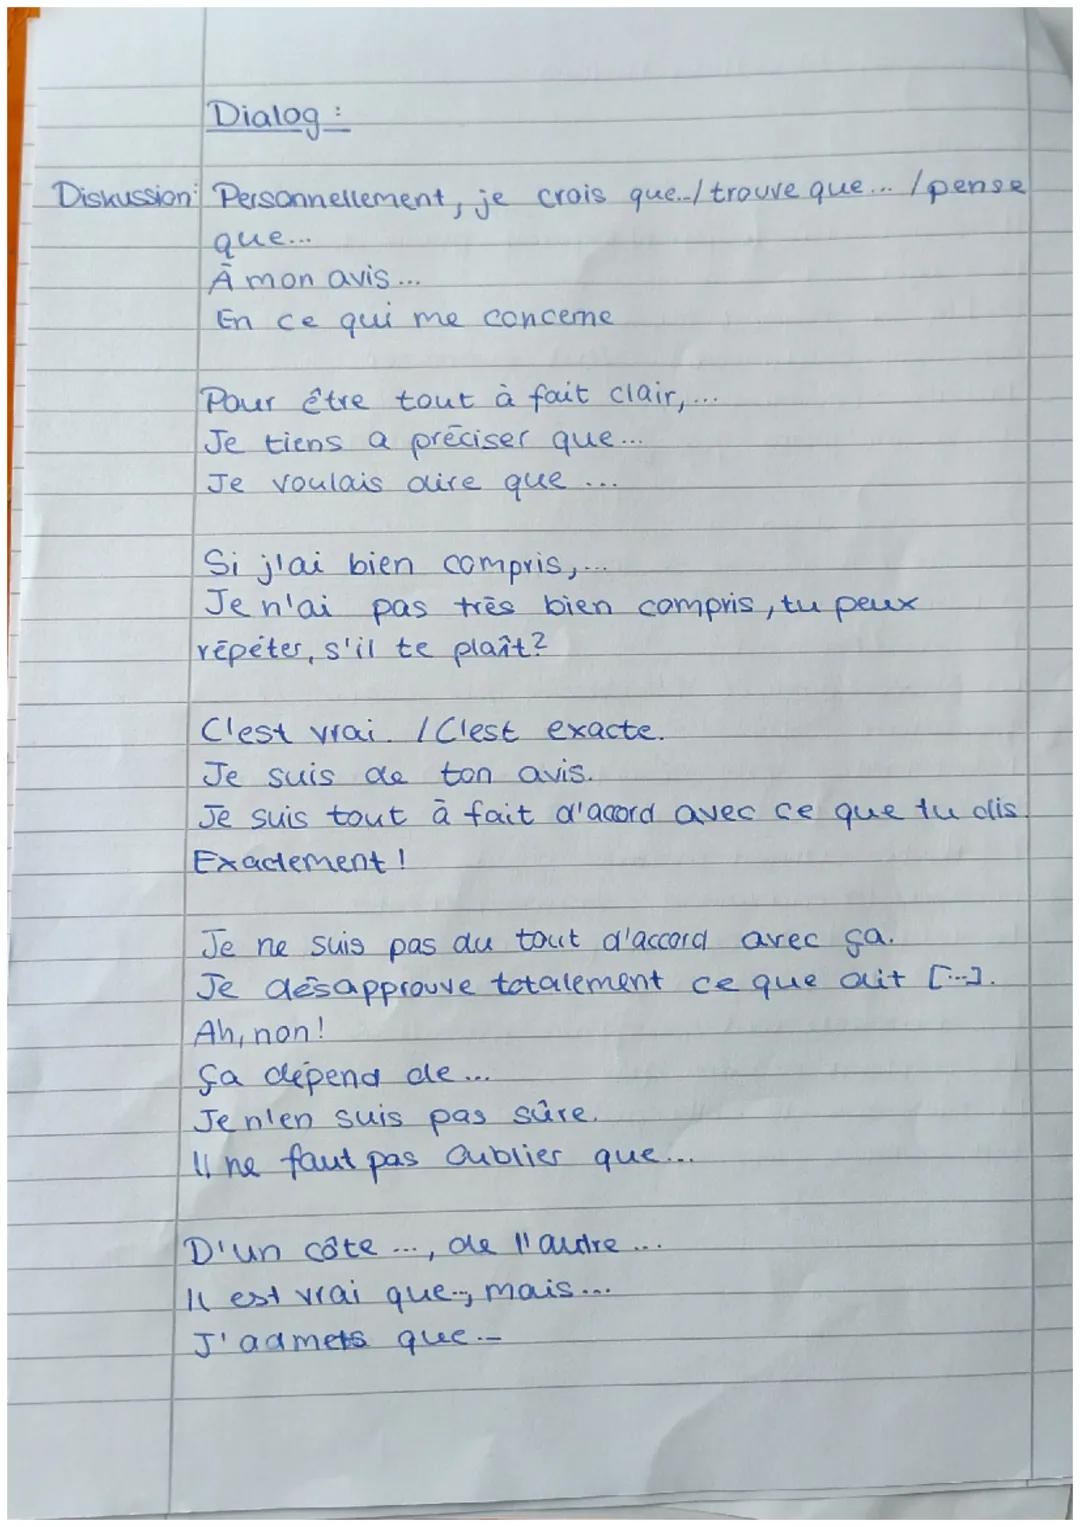 Dialog :
Diskussion: Personnellement, je crois que../ trouve que... / pense
que...
À mon avis ...
En ce qui me concerne
Pour être tout à fait clair, ...
Je tiens a préciser que...
Je voulais dire que ...
Si j'ai bien compris, ...
Je n'ai pas très bien compris, tu peux
répéter, s'il te plaît?
C'est vrai. / C'est exacte.
Je suis de ton avis.
Je suis tout à fait d'accord avec ce que tu dis.
Exactement !
Je ne suis pas du tout d'accord avec ça.
Je désapprouve totalement ce que dit [...].
Ah, non!
Ça dépend de ...
Je n'en suis pas sûre.
Il ne faut pas oublier que...
D'un côte ..., de l'autre ...
Il est vrai que..., mais ...
J'admets que ...